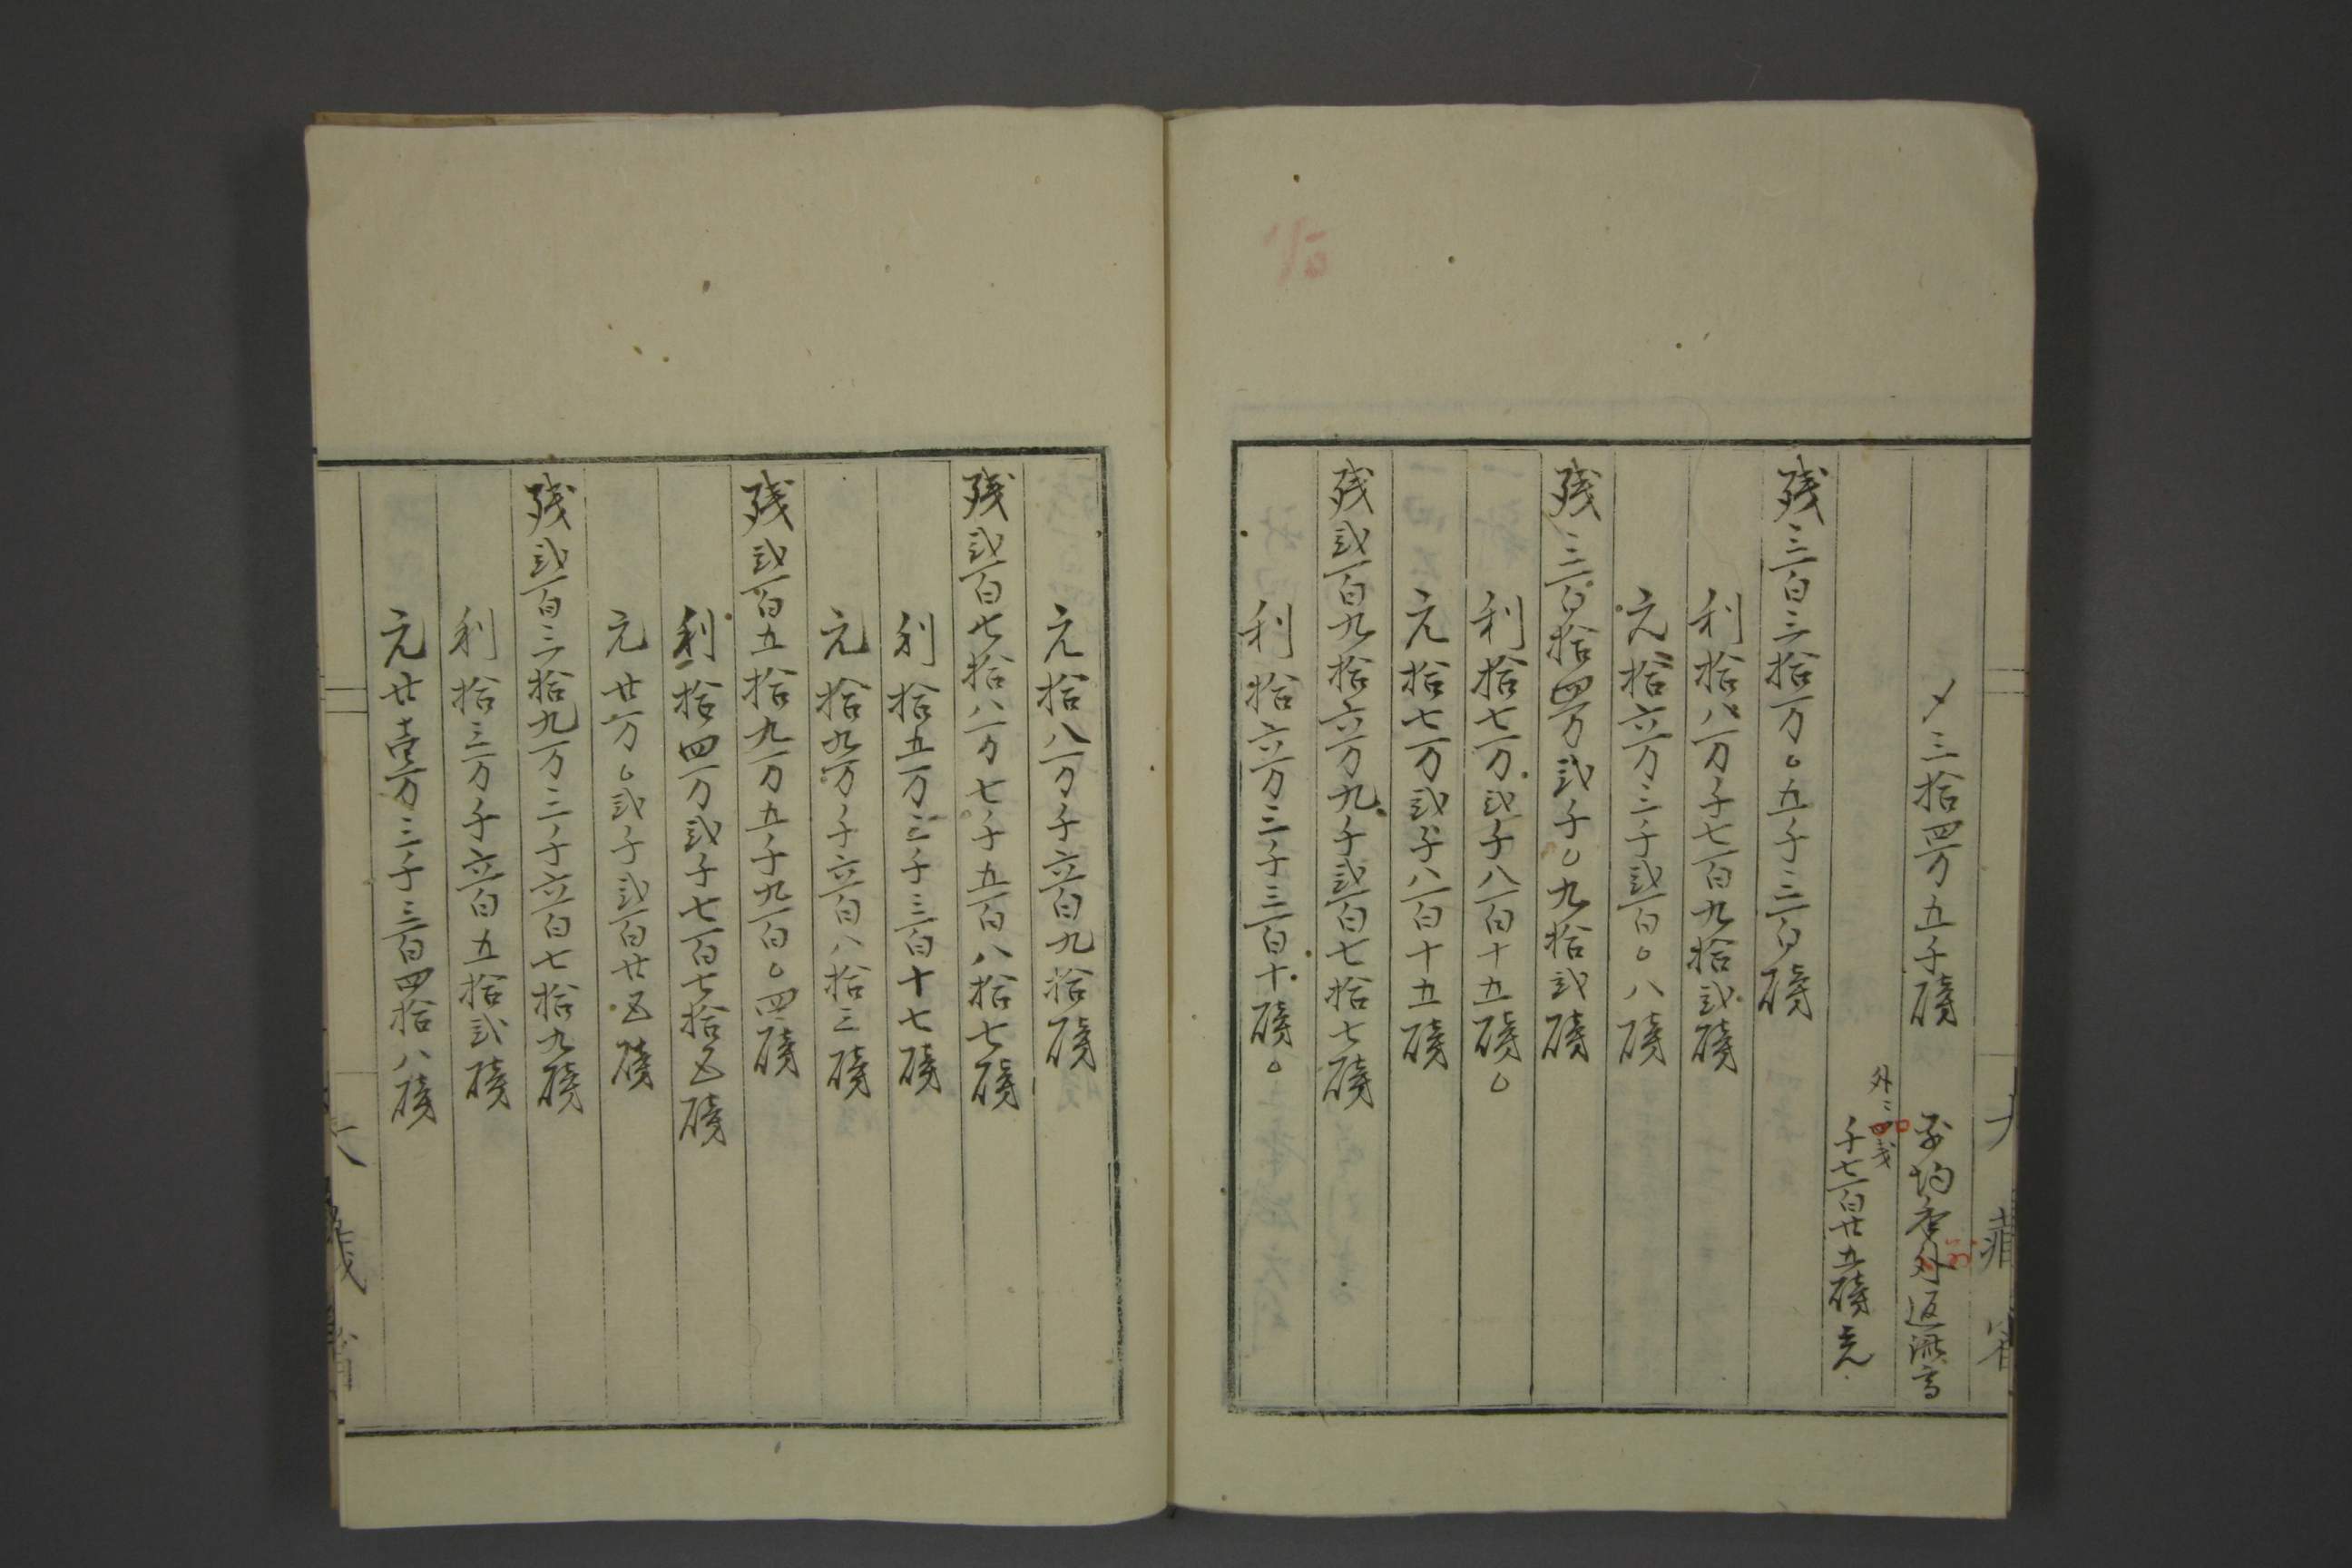 〆三拾四万五千磅
外ニ
千七百廿五磅
残三百三拾一万〇五千三百磅
利拾八万千七百九拾弐磅
元拾六万三千弐百〇八磅
残三百拾四万弐千〇九拾弐磅
利拾七万弐千八百十五磅〇
元拾七万弐千八百十五磅
残弐百九拾六万九千弐百七拾七磅
利拾六万三千三百十磅〇
元拾八万千六百九拾磅
残弐百七拾八万七千五百八拾七磅
利拾五万三千三百十七磅
元拾九万千六百八拾三磅
残弐百五拾九万五千九百〇四磅
利拾四万弐千七百七拾五磅
元廿万〇弐千弐百廿五磅
残弐百三拾九万三千六百七拾九磅
利拾三万千六百五拾弐磅
元廿壹万三千三百四拾八磅
大蔵省